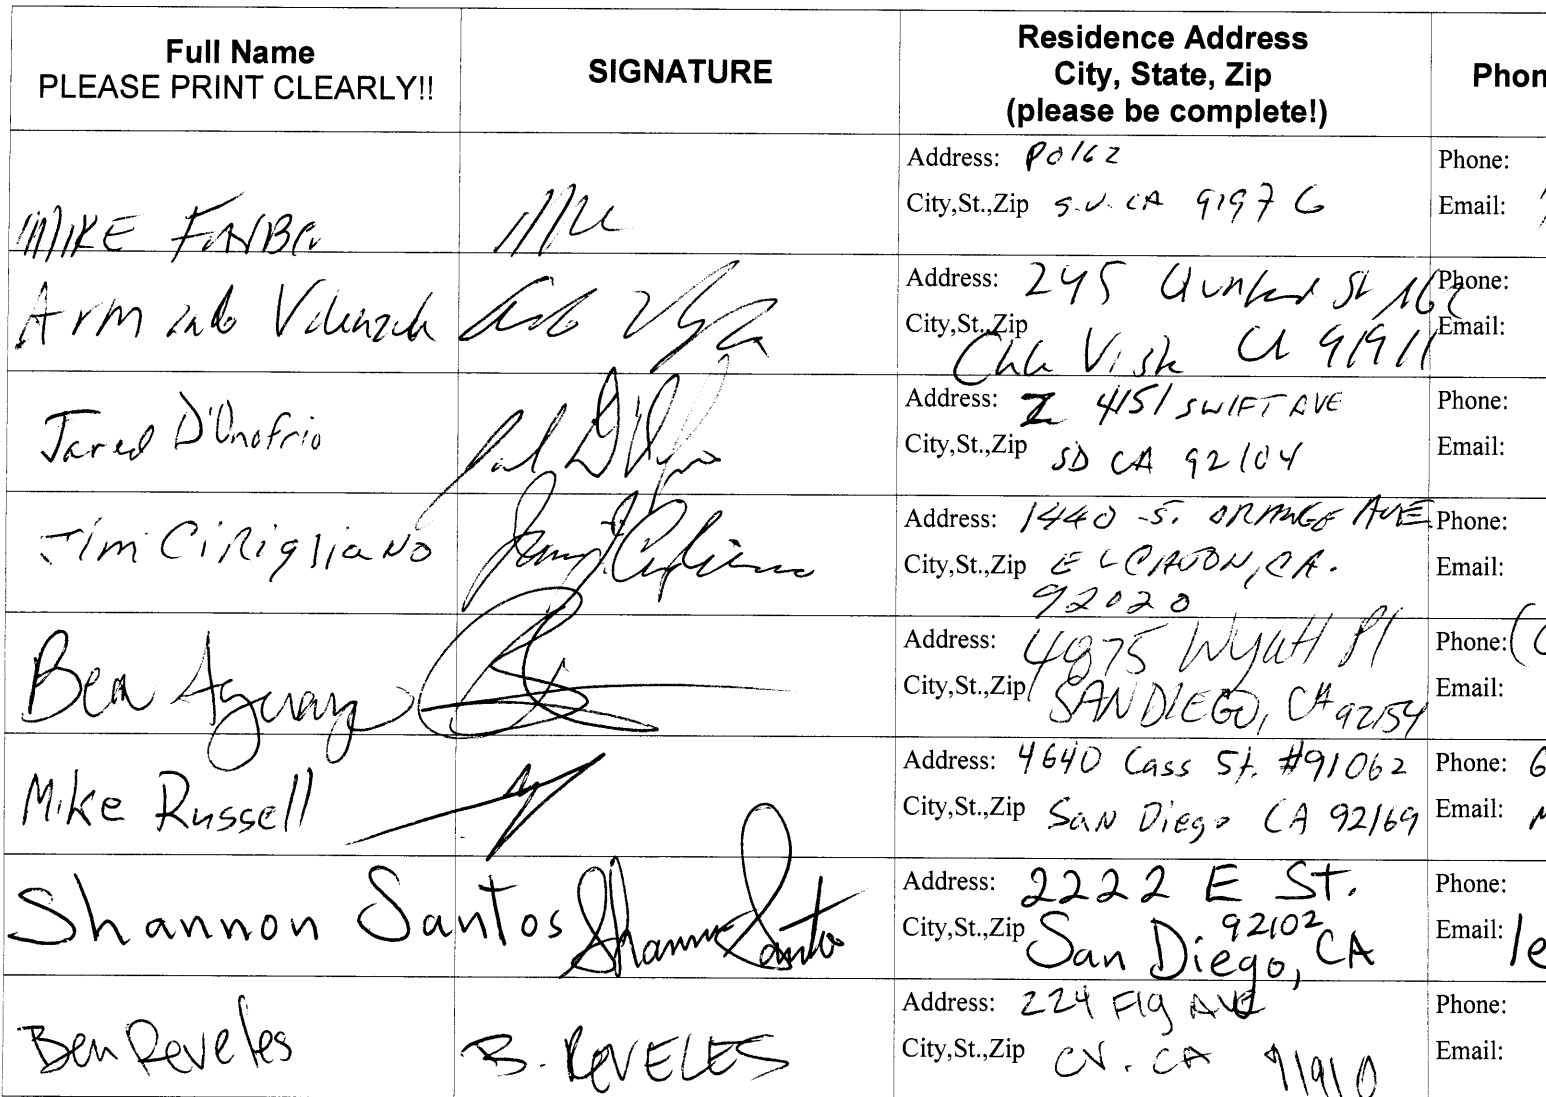 Full Name
PLEASE PRINT CLEARLY!!
SIGNATURE
Residence Address
City, State, Zip
(please be complete!)
Phon
MIKE
Address: PO162
City,St.,Zip S.V. CA 91976
Phone:
Email:
Armando Valenzuela
Address: 245 St 162
City,St.,Zip
Chula Vista CA 91911
Phone:
Email:
Jared D'Onofrio
Address: 4151 SWIFT AVE
City,St.,Zip SD CA 92104
Phone:
Email:
Jim CiRiglianO
Address: 1440 S. ORANGE AVE
City,St.,Zip EL CAJON, CA.
92020
Phone:
Email:
Ben
Address: 4875 Wyatt Pl
City,St.,Zip SAN DIEGO, CA 92154
Phone: (
Email:
Mike Russell
Address: 4640 Cass St. #91062
City,St.,Zip San Diego CA 92169
Phone: 6
Email:
Shannon Santos
Shannon Santos
Address: 2222 E St.
City,St.,Zip San Diego, CA 92102
Phone:
Email: le
Ben Reveles
B. REVELES
Address: 224 Fig AVE
City,St.,Zip CV. CA 91910
Phone:
Email: